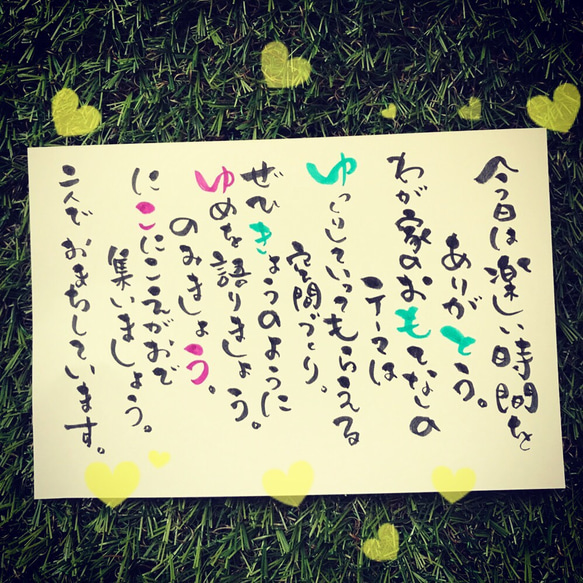 今日は楽しい時間を
ありがとう。
わが家のおもてなしの
テーマは
ゆっくりしていってもらえる
空間づくり。
ぜひきょうのように
ゆめを語りましょう。
のみましょう。
にこにこえがおで
集いましょう。
二人でおまちしています。